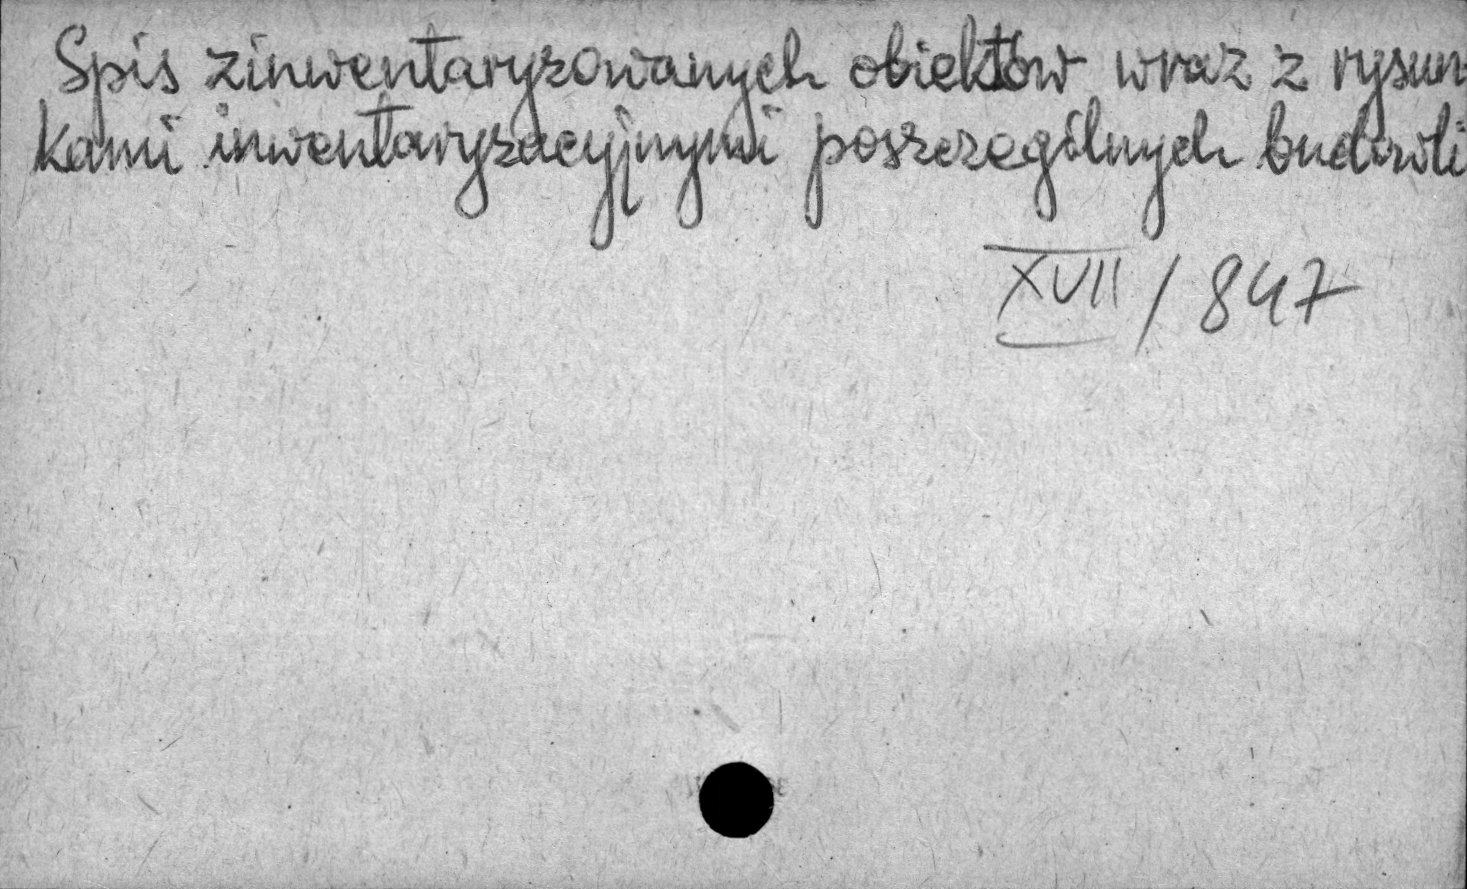 Spis zinwentaryzowanych obiektów wraz z rysun-
kami inwentaryzacyjnymi poszczególnych budowli
XVII / 847